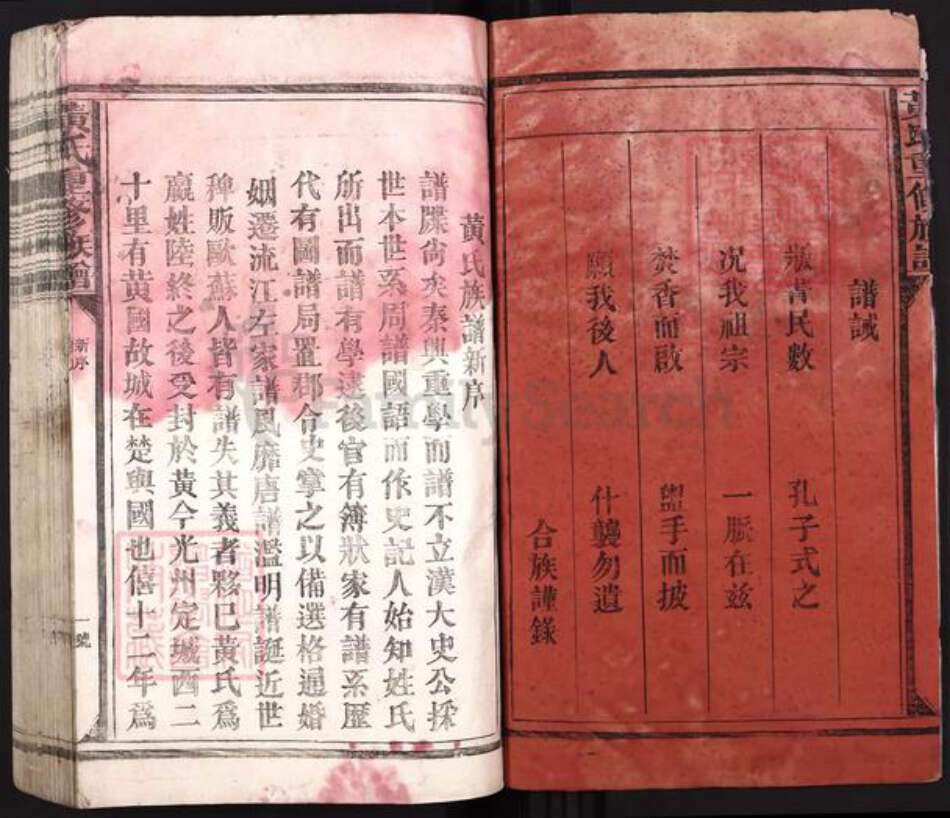 黃氏重修族譜
譜誡
漿書民數 孔子式之
況我祖宗 一脈在兹
焚香而啟 盥手而披
願我後人 什襲勿遺
合族謹錄
黃氏族譜新序
譜牒尚矣秦興重學而譜不立漢大史公採
世本世系周譜國語而作史記人始知姓氏
所出而譜有學逮後官有簿狀家有譜系歷
代有圖譜局置郡令史掌之以備選格通婚
姻遷流江左家譜民龐唐譜濫明譜誕近世
稗販歐蘇人皆有譜失其義者夥巳黃氏爲
嬴姓陸終之後受封於黃今光州定城西二
十里有黃國故城在楚與國也僖十二年爲
黃氏重修族譜
新序
一號
FamilySearch